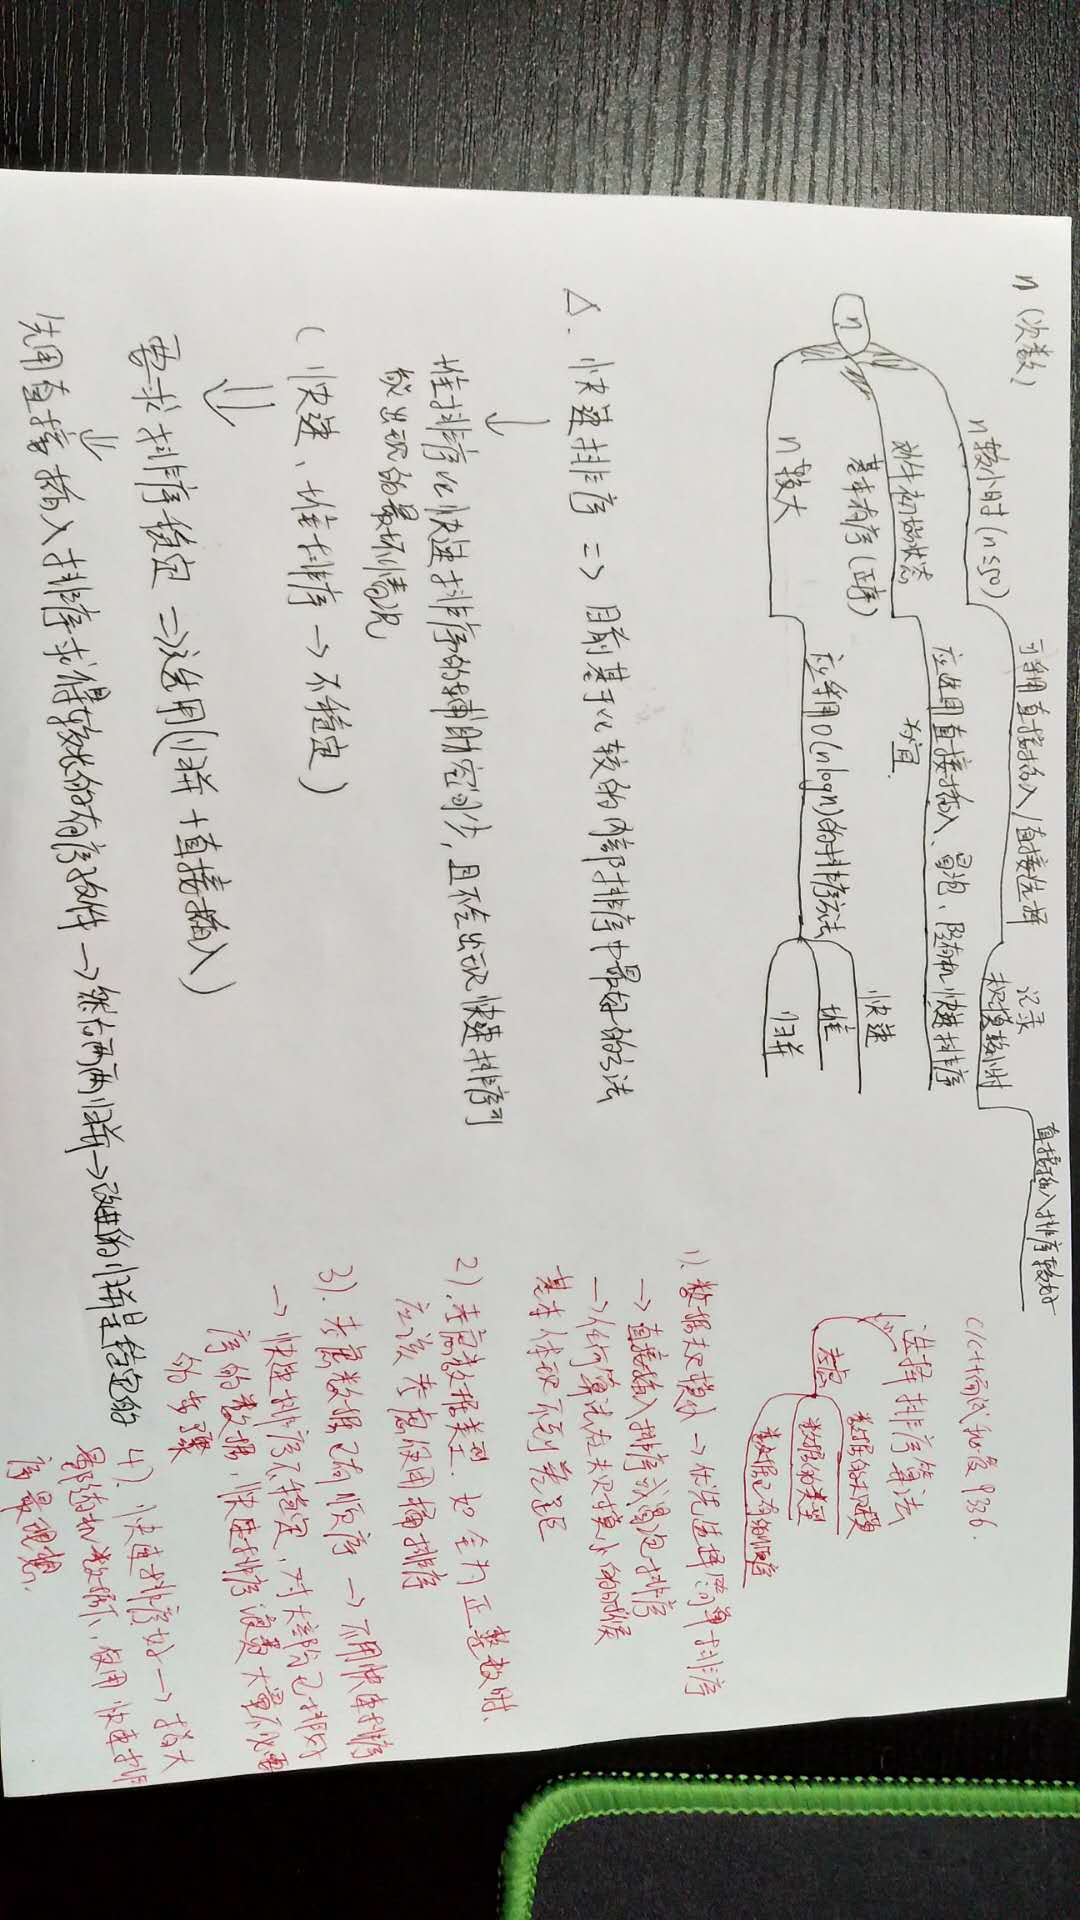 n (次数)
n
n较小时(n≤50)
可采用直接插入/直接选择
记录
规模较小时
直接插入排序较好
文件初始状态
基本有序(正序)
应选用直接插入、冒泡、随机快速排序
为宜
n较大
应采用O(nlogn)的排序方法
快速
堆
归并
△. 快速排序 => 目前基于比较的内部排序中最好的方法
↓
堆排序比快速排序的辅助空间少, 且不会出现快速排序可
能出现的最坏情况
(快速、堆排序 → 不稳定)
⇓
要求排序稳定 => 选用(归并+直接插入)
↓
先用直接插入排序求得较长的有序文件 → 然后两两归并 → 改进的归并是稳定的
C/C++面试秘笈 P336.
选择排序算法
考虑
数据的规模
数据的类型
数据已有的顺序
1). 数据规模小 → 优先选择简单排序
→ 直接插入排序或冒泡排序
→ 任何算法在规模小的时候
基本体现不到差距
2). 考虑数据类型. 如全为正整数时.
应该考虑使用桶排序
3). 考虑数据已有顺序 → 不用快速排序
→ 快速排序不稳定, 对大部分已排好
序的数据, 快速排序浪费大量不必要
的步骤
4). 快速排序好 → 指大
量随机数据下, 使用快速排
序最理想.